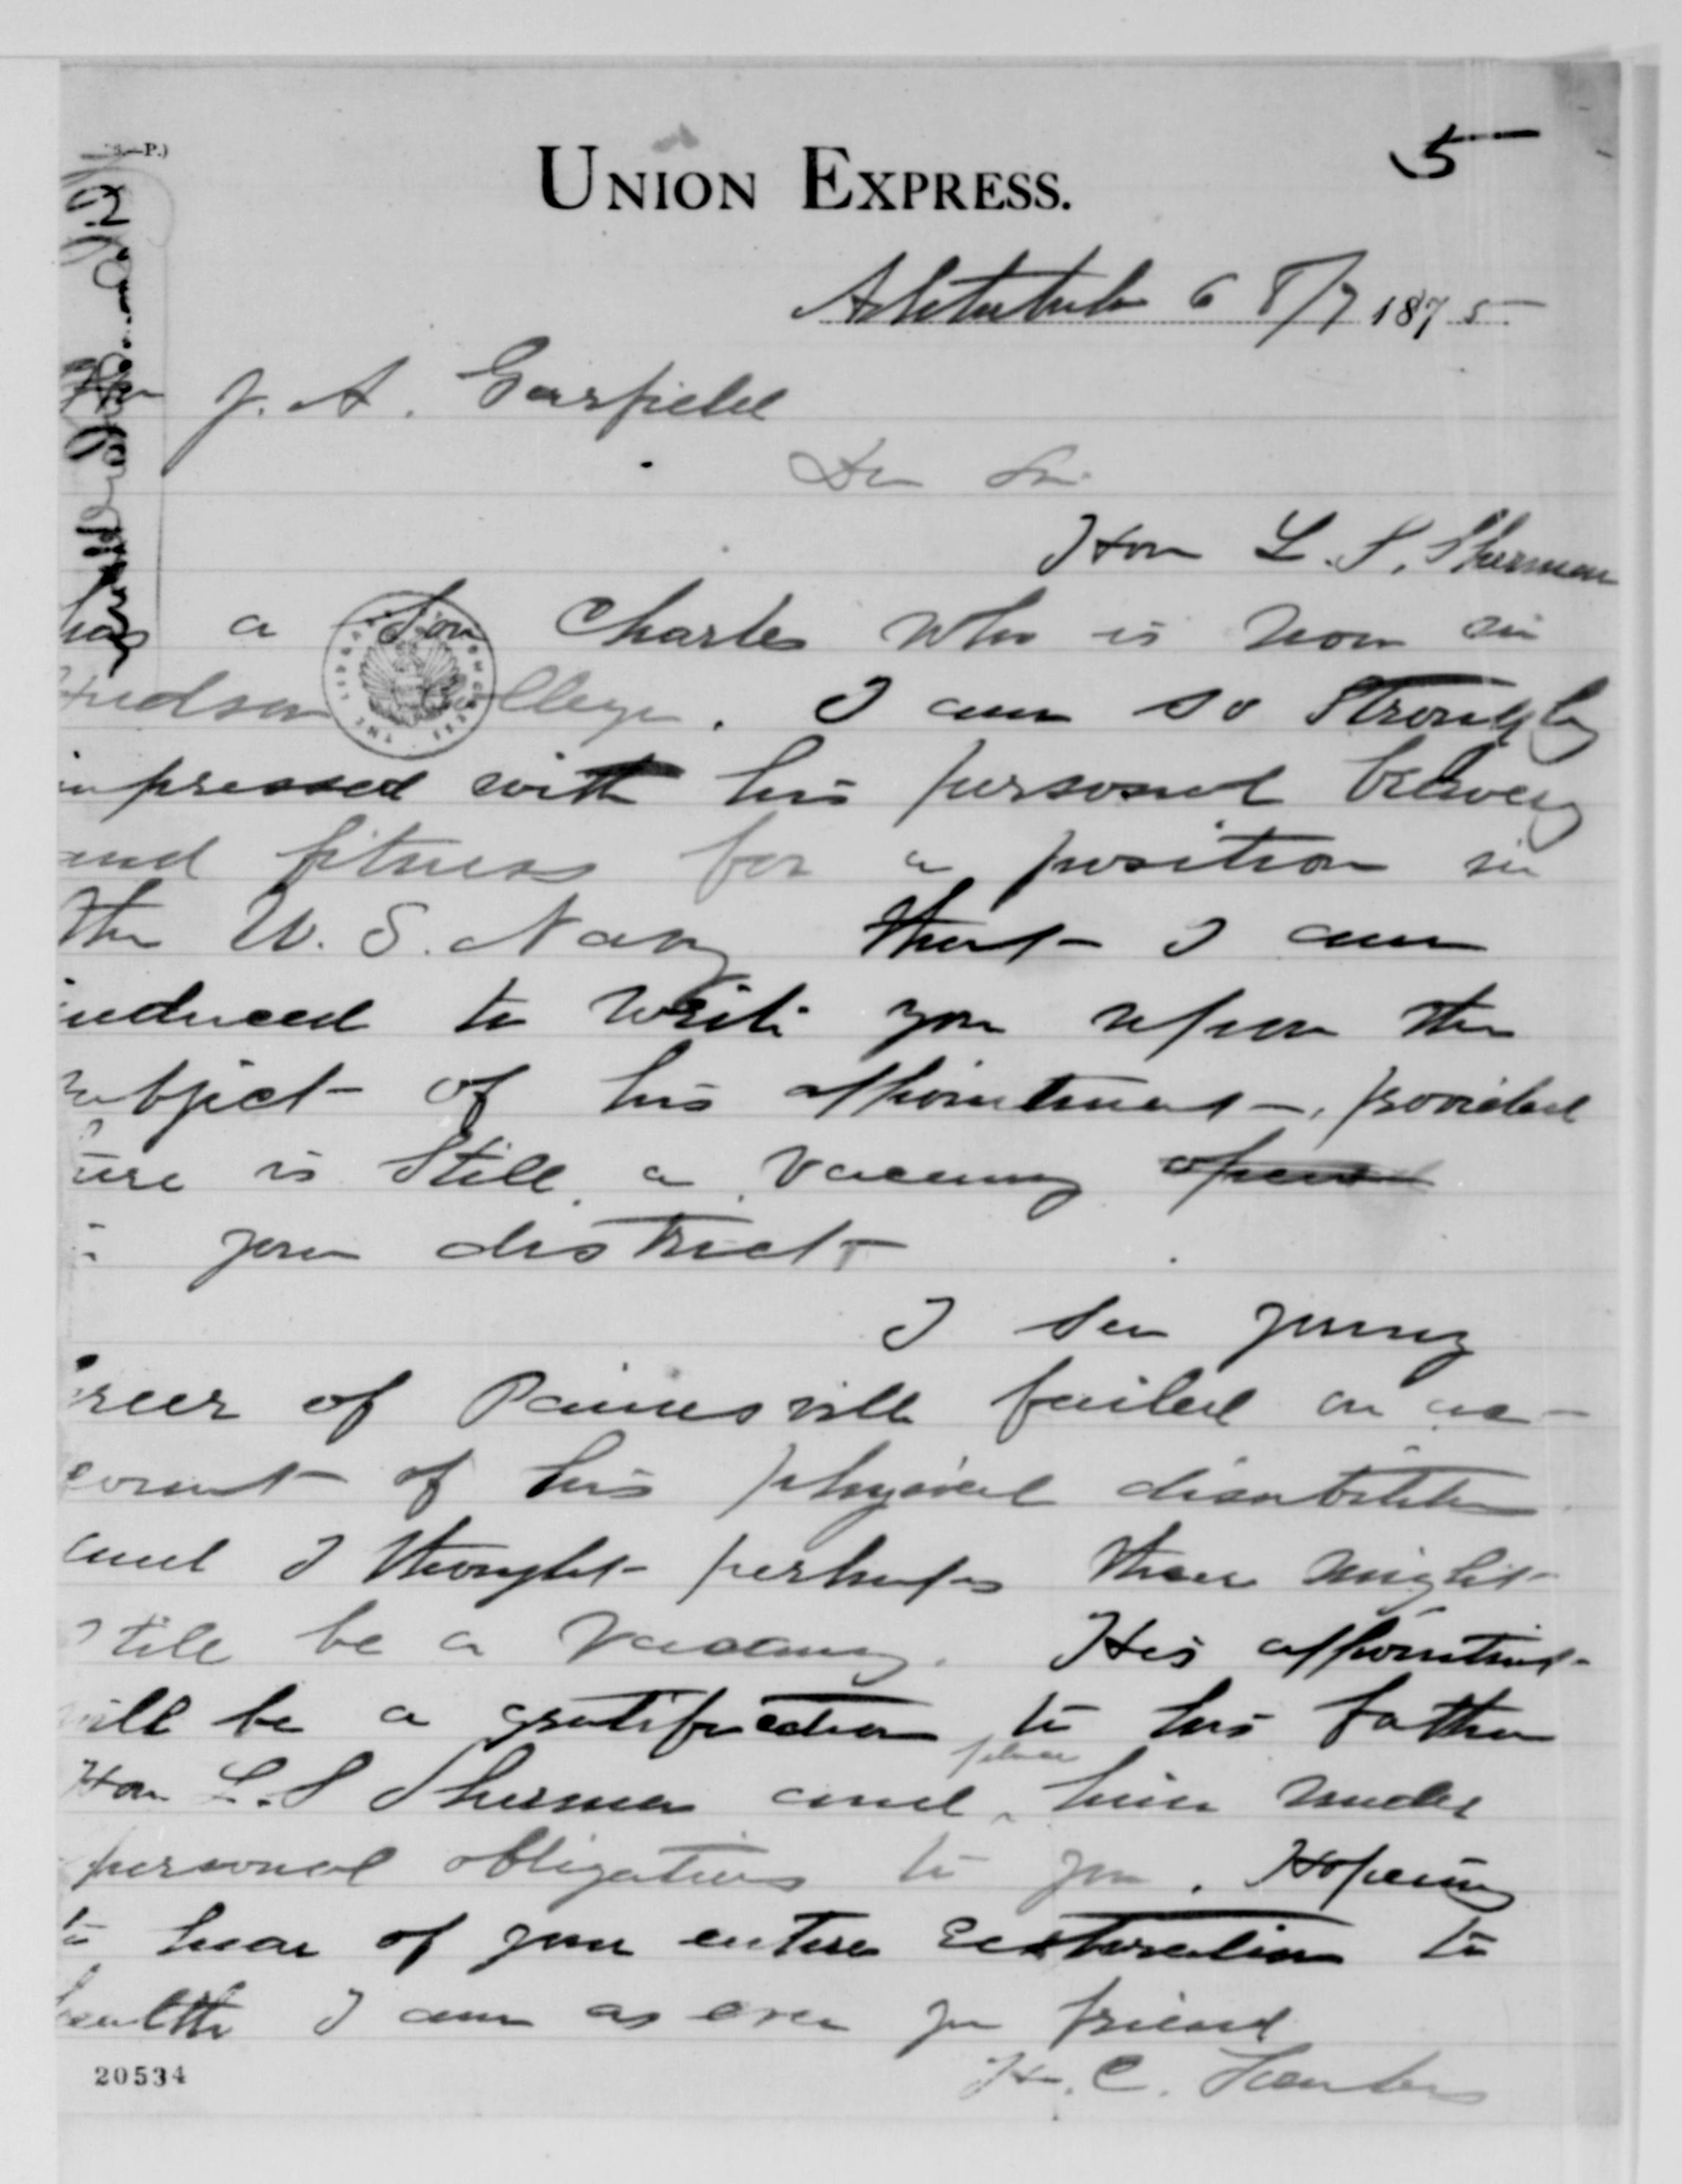 UNION EXPRESS.
5
Ashtabula O 8/7 1875
Hon J. A. Garfield
Dear Sir
Hon L. S. Sherman
has a Son Charles who is now in
Hudson College. I am so Strongly
impressed with his personal bravery
and fitness for a position in
the U. S. Navy that I am
induced to write you upon the
subject of his appointment, provided
there is Still a vacancy open
in your district
I See young
of Painesville failed on ac-
count of his physical disabilities
and I thought perhaps there might
Still be a vacancy. His appointment
will be a gratification to his father
Hon L. S Sherman and place him under
personal obligations to you. Hoping
to hear of your entire restoration to
health I am as ever your friend
H. C.
20534